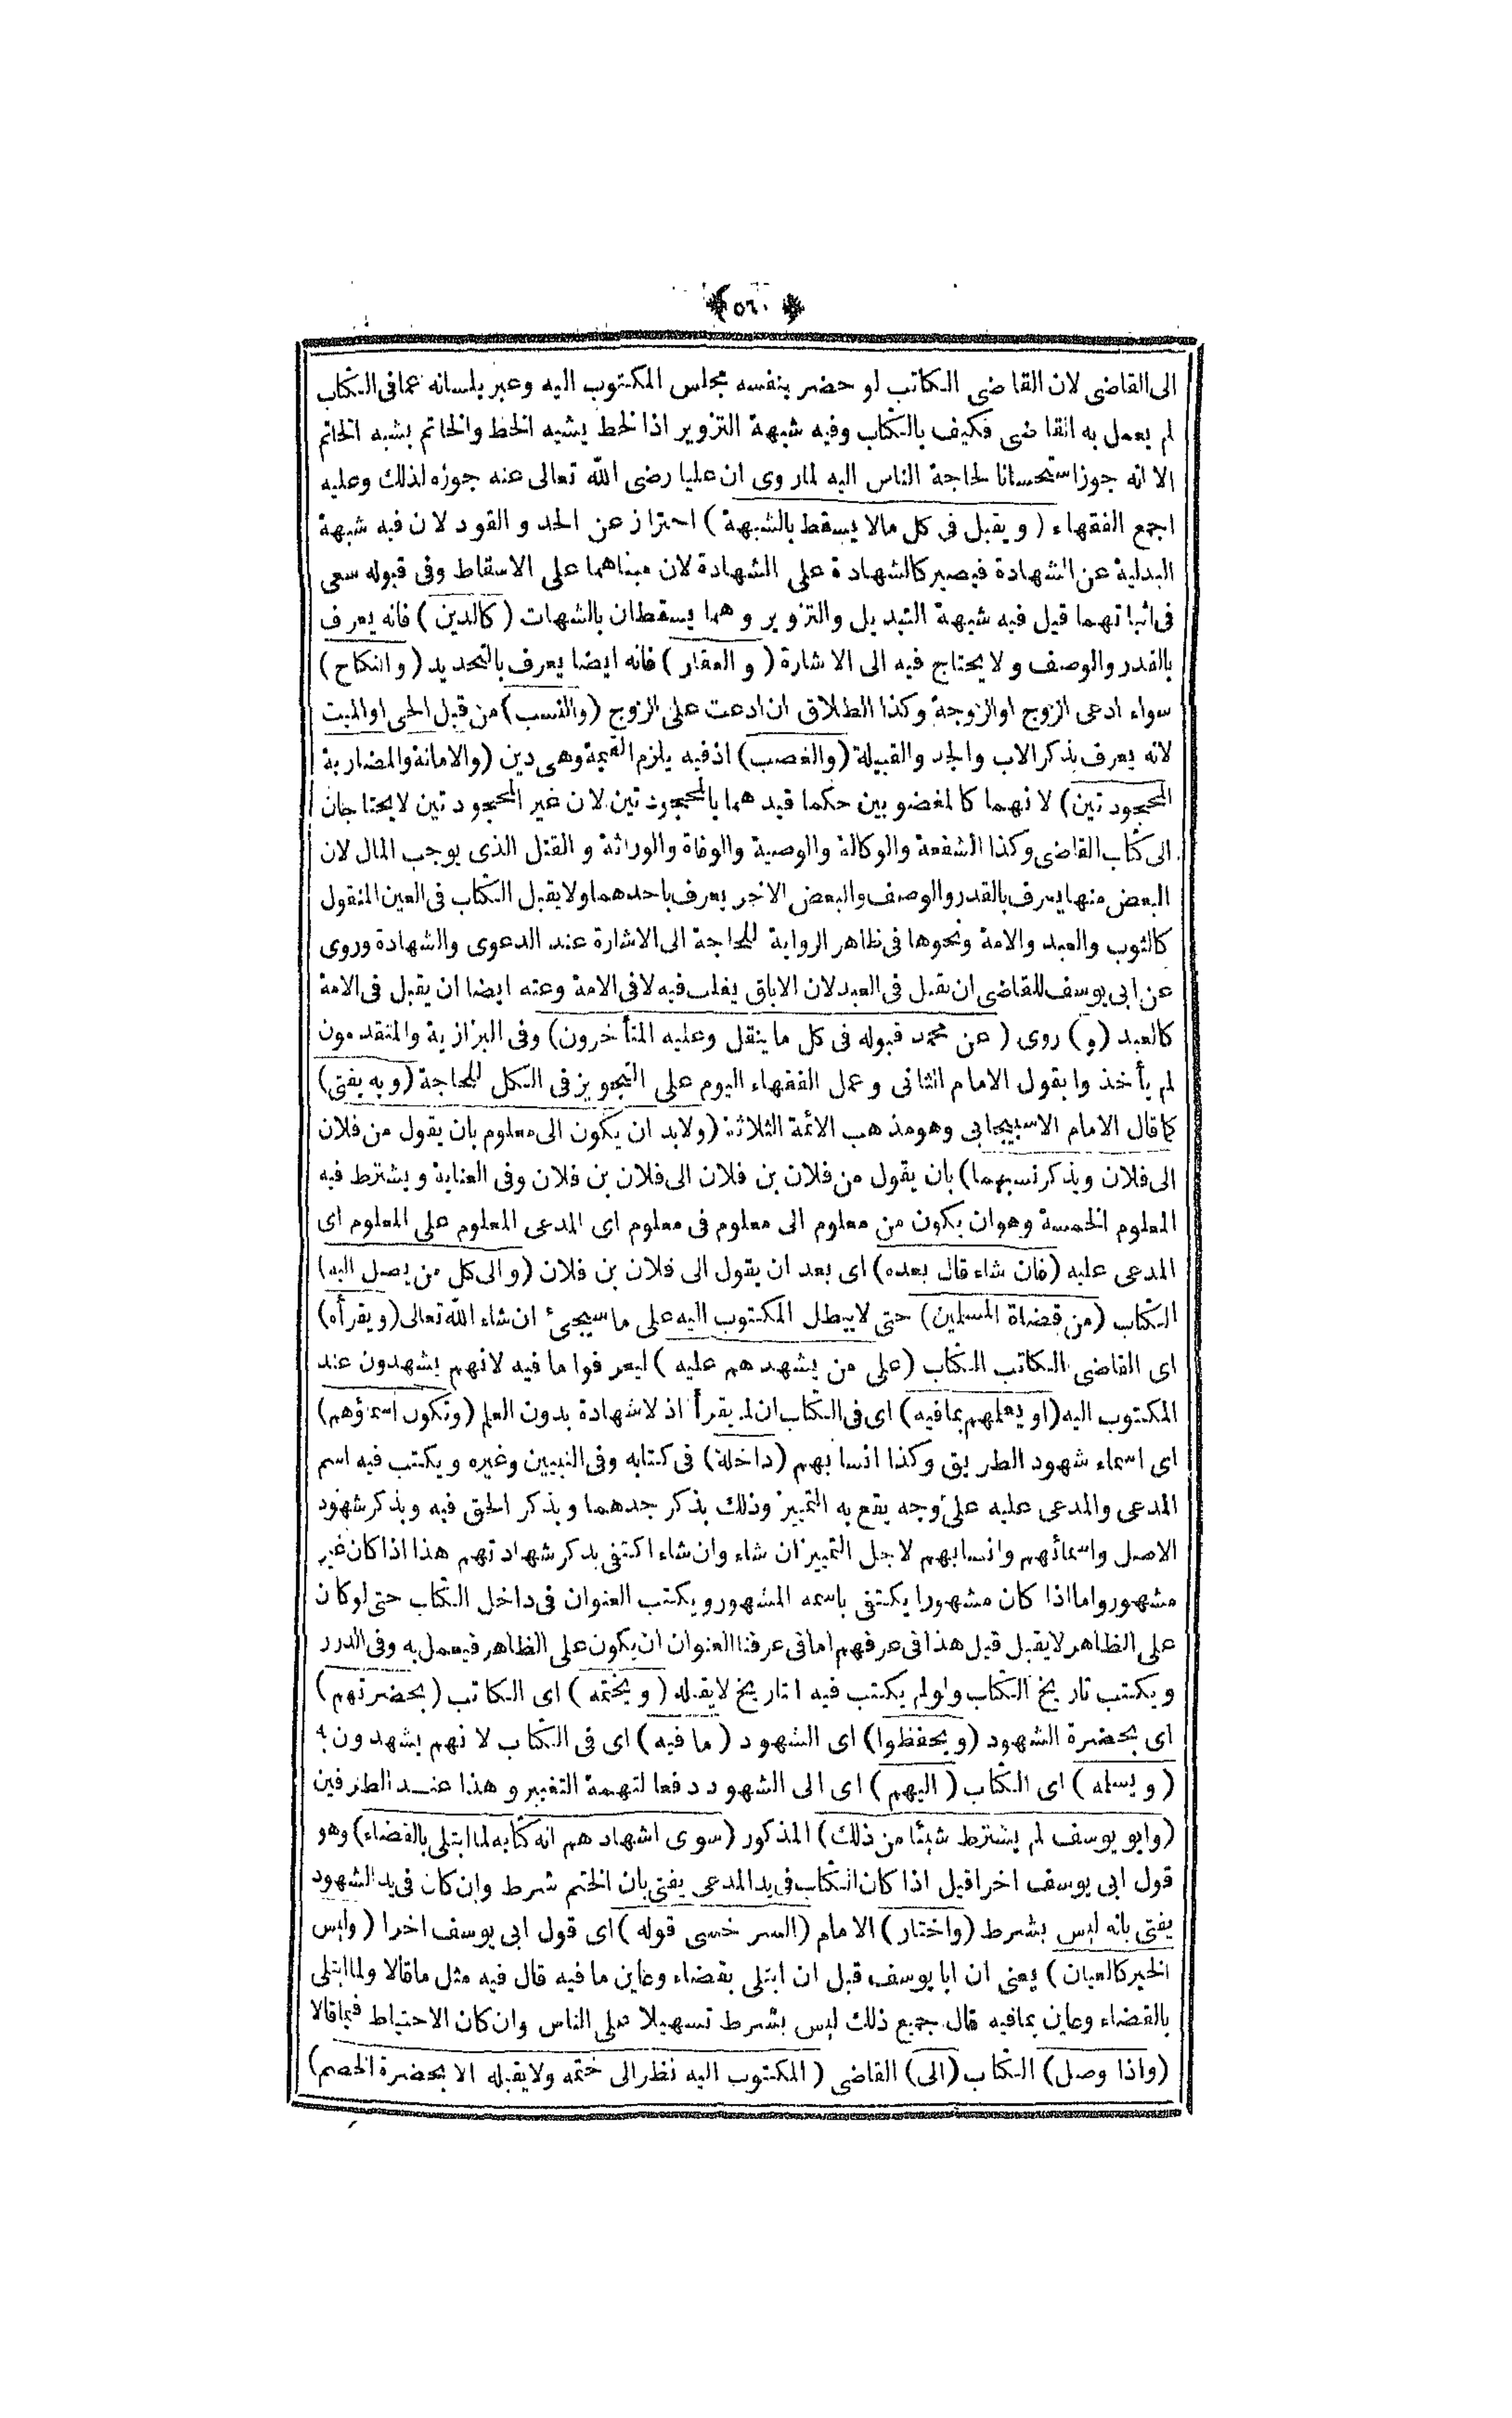 ٥٦٠
الى القاضى لان القاضى الكاتب لو حضر بنفسه مجلس المكتوب اليه وعبر بلسانه عما فى الكتاب
لم يعمل به القاضى فكيف بالكتاب وفيه شبهة التزوير اذ الخط يشبه الخط والخاتم يشبه الخاتم
الا انه جوز استحسانا لحاجة الناس اليه لما روى ان عليا رضى الله تعالى عنه جوزه لذلك وعليه
اجمع الفقهاء ( ويقبل فى كل مالا يسقط بالشبهة ) احتراز عن الحد و القود لان فيه شبهة
البدلية عن الشهادة فيصير كالشهادة على الشهادة لان مبناهما على الاسقاط وفى قبوله سعى
فى اثباتهما قيل فيه شبهة التبديل والتزوير وهما يسقطان بالشبهات ( كالدين ) فانه يعرف
بالقدر والوصف ولا يحتاج فيه الى الاشارة ( و العقار ) فانه ايضا يعرف بالتحديد ( والنكاح )
سواء ادعى الزوج او الزوجة وكذا الطلاق ان ادعت على الزوج (والنسب) من قبل الحى او الميت
لانه يعرف بذكر الاب والجد والقبيلة (والغصب) اذ فيه يلزم القيمة وهى دين (والامانة والمضاربة
المحجودتين) لانهما كالمغضوبين حكما قيدهما بالمحجودتين لان غير المحجودتين لا يحتاجان
الى كتاب القاضى وكذا الشفعة والوكالة والوصية والوفاة والوراثة و القتل الذى يوجب المال لان
البعض منها يعرف بالقدر والوصف والبعض الاخر يعرف باحدهما ولا يقبل الكتاب فى العين المنقول
كالثوب والعبد والامة ونحوها فى ظاهر الرواية للحاجة الى الاشارة عند الدعوى والشهادة وروى
عن ابى يوسف للقاضى ان يقبل فى العبد لان الاباق يغلب فيه لا فى الامة وعنه ايضا ان يقبل فى الامة
كالعبد (و) روى ( عن محمد قبوله فى كل ما ينقل وعليه المتأخرون) وفى البزازية والمتقدمون
لم يأخذوا بقول الامام الثانى وعمل الفقهاء اليوم على التجويز فى الكل للحاجة (وبه يفتى)
كما قال الامام الاسبيجابى وهو مذهب الائمة الثلاثة (ولابد ان يكون الى معلوم بان يقول من فلان
الى فلان ويذكر نسبهما) بان يقول من فلان بن فلان الى فلان بن فلان وفى العناية ويشترط فيه
المعلوم الخمسة وهو ان يكون من معلوم الى معلوم فى معلوم اى المدعى المعلوم على المعلوم اى
المدعى عليه (فان شاء قال بعده) اى بعد ان يقول الى فلان بن فلان (والى كل من يصل اليه)
الكتاب (من قضاة المسلين) حتى لا يبطل المكتوب اليه على ما سيجىء ان شاء الله تعالى (ويقرأه)
اى القاضى الكاتب الكتاب (على من يشهدهم عليه ) ليعرفوا ما فيه لانهم يشهدون عند
المكتوب اليه (او يعلمهم بما فيه) اى فى الكتاب ان لم يقرأ اذ لا شهادة بدون العلم (وتكون اسماؤهم)
اى اسماء شهود الطريق وكذا انسابهم (داخلة) فى كتابه وفى التبيين وغيره ويكتب فيه اسم
المدعى والمدعى عليه على وجه يقع به التمييز وذلك بذكر جدهما ويذكر الحق فيه ويذكر شهود
الاصل واسمائهم وانسابهم لاجل التمييز ان شاء وان شاء اكتفى بذكر شهادتهم هذا اذا كان غير
مشهور واما اذا كان مشهورا يكتفى باسمه المشهور ويكتب العنوان فى داخل الكتاب حتى لو كان
على الظاهر لا يقبل قيل هذا فى عرفهم اما فى عرفنا العنوان ان يكون على الظاهر فيعمل به وفى الدرر
ويكتب تاريخ الكتاب ولو لم يكتب فيه التاريخ لا يقبله ( ويختمه ) اى الكاتب (بحضرتهم)
اى بحضرة الشهود (ويحفظوا) اى الشهود (ما فيه) اى فى الكتاب لانهم يشهدون به
(ويسلمه ) اى الكتاب ( اليهم ) اى الى الشهود دفعا لتهمة التغيير وهذا عند الطرفين
(وابو يوسف لم يشترط شيئا من ذلك) المذكور (سوى اشهادهم انه كتابه لما ابتلى بالقضاء) وهو
قول ابى يوسف اخرا قيل اذا كان الكتاب فى يد المدعى يفتى بان الختم شرط وان كان فى يد الشهود
يفتى بانه ليس بشرط (واختار) الامام (السرخسى قوله ) اى قول ابى يوسف اخرا (وليس
الخبر كالعيان ) يعنى ان ابا يوسف قبل ان ابتلى بقضاء وعاين ما فيه قال فيه مثل ما قالا ولما ابتلى
بالقضاء وعاين بما فيه قال جميع ذلك ليس بشرط تسهيلا على الناس وان كان الاحتياط فيما قالا
(واذا وصل) الكتاب (الى) القاضى (المكتوب اليه نظر الى ختمه ولا يقبله الا بحضرة الخصم)